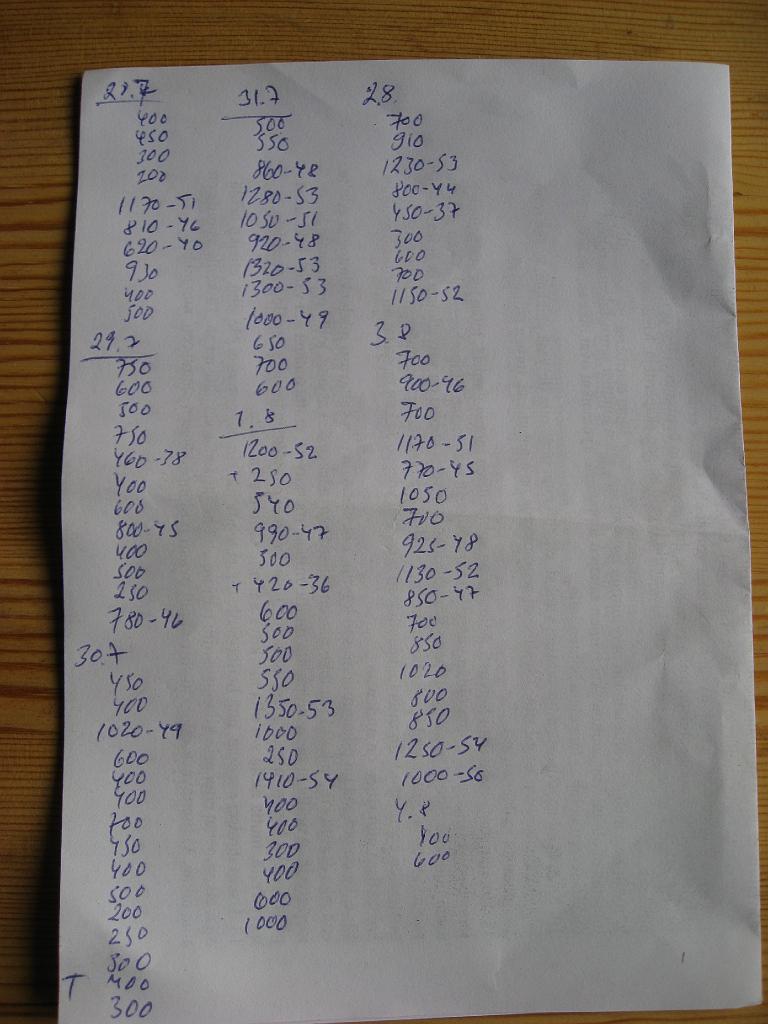 28.7
400
450
300
200
1170-51
810-46
620-40
930
400
500
29.7
750
600
500
750
460-38
400
600
800-45
400
500
250
780-46
30.7
450
400
1020-49
600
400
400
700
450
400
500
200
250
300
T 400
300
31.7
500
550
860-48
1280-53
1050-51
920-48
1320-53
1300-53
1000-49
650
700
600
1.8
1200-52
+ 250
540
990-47
300
+ 420-36
600
500
500
550
1350-53
1000
250
1410-54
400
400
300
400
600
1000
2.8.
700
910
1230-53
800-44
450-37
300
600
700
1150-52
3.8
700
900-46
700
1170-51
770-45
1050
700
925-48
1130-52
850-47
700
850
1020
800
850
1250-54
1000-50
4.8
400
600